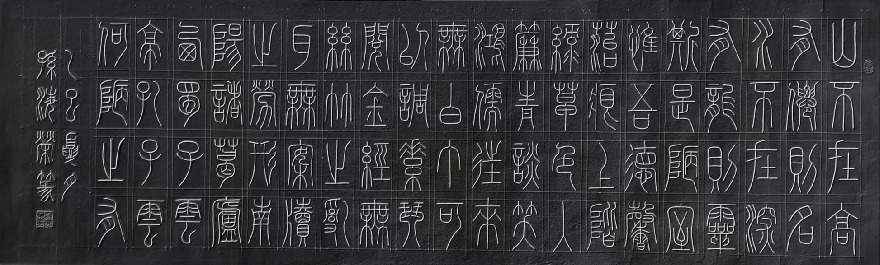 山不在高
有僊則名
水不在深
有龍則靈
斯是陋室
惟吾德馨
菭痕上階
綠草色入
簾青談笑
鴻儒往來
無白丁可
以調素琴
閱金經無
絲竹之亂
耳無案牘
之勞形南
陽諸葛廬
西蜀子雲
亭孔子雲
何陋之有
乙巳夏月
孫海榮篆